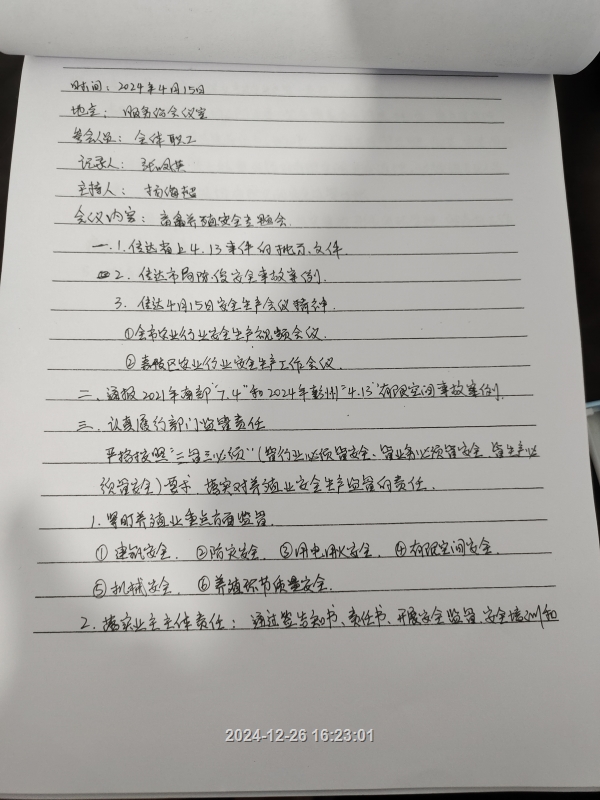 时间：2024年4月15日
地点：服务站会议室
参会人员：全体职工
记录人：张
主持人：杨
会议内容：畜禽养殖安全专题会.
一.1.传达省上4.13事件的批示文件.
2.传达市局防疫安全事故案例.
3.传达4月15日安全生产会议精神.
①全市农业行业安全生产视频会议.
②嘉陵区农业行业安全生产工作会议.
二、通报2021年南部"7.4"和2024年彭州"4.13"有限空间事故案例.
三、认真履行部门监管责任
严格按照"三管三必须"(管行业必须管安全、管业务必须管安全、管生产必
须管安全)要求,落实对养殖业安全生产监管的责任.
1.紧盯养殖业重点方面监管.
①建筑安全. ②防灾安全. ③用电用火安全. ④有限空间安全.
⑤机械安全. ⑥养殖环节质量安全.
2.落实业主主体责任：通过签告知书、责任书、开展安全监管、安全培训和
2024-12-26 16:23:01